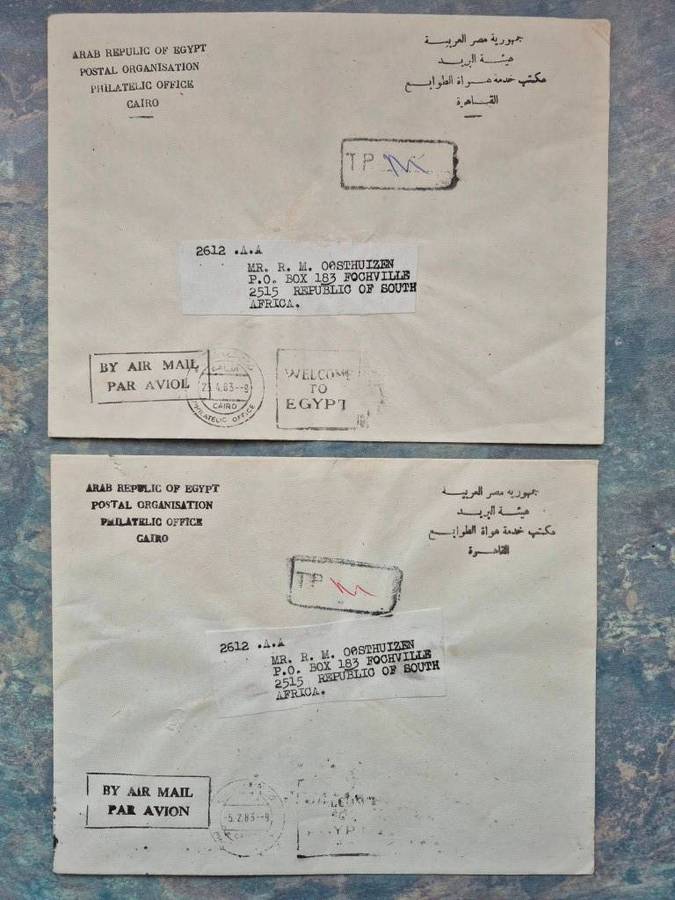 ARAB REPULIC OF EGYPT
POSTAL ORGANISATION
PHILATELIC OFFICE
CAIRO
جمهورية مصر العربية
هيئة البريد
مكتب خدمة هواة الطوابع
القاهرة
TP
2612 .A.A
MR. R. M. OOSTHUIZEN
P.O. BOX 183 FOCHVILLE
2515 REPUBLIC OF SOUTH
AFRICA.
BY AIR MAIL
PAR AVION
4.83--8
CAIRO
PHILATELIC OFFICE
WELCOME
TO
EGYPT
ARAB REPULIC OF EGYPT
POSTAL ORGANISATION
PHILATELIC OFFICE
CAIRO
جمهورية مصر العربية
هيئة البريد
مكتب خدمة هواة الطوابع
القاهرة
TP
2612 .A.A
MR. R. M. OOSTHUIZEN
P.O. BOX 183 FOCHVILLE
2515 REPUBLIC OF SOUTH
AFRICA.
BY AIR MAIL
PAR AVION
5.2.83--8